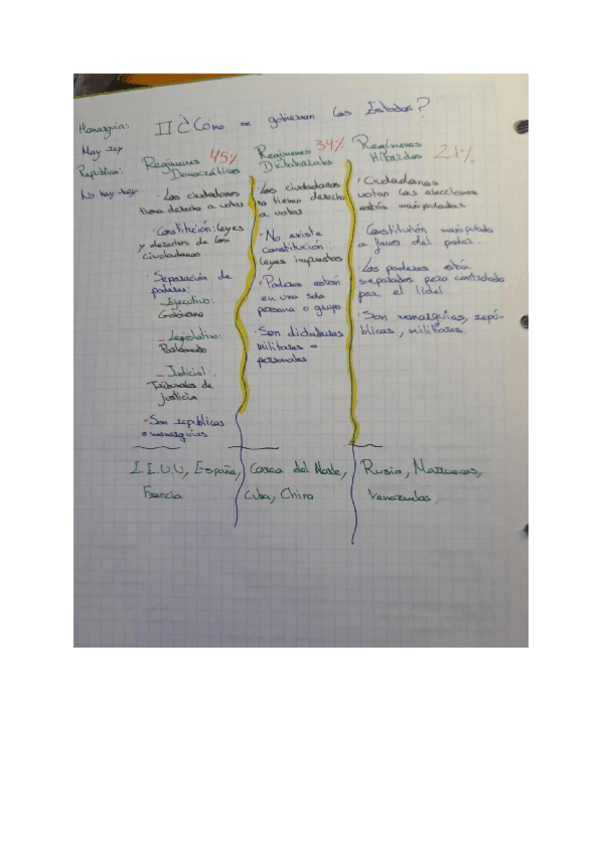 Monarquía:
Hay rey
República:
No hay rey
II ¿Cómo se gobiernan los Estados?
Regímenes 45%
Democráticos
· Los ciudadanos
tiene derecho a votar
· Constitución: leyes
y derechos de los
ciudadanos
· Separación de
poderes:
_ Ejecutivo:
Gobierno
_ Legislativo:
Parlamento
_ Judicial:
Tribunales de
justicia
· Son repúblicas
o monarquías
E.E.U.U, España,
Francia
Regímenes 34%
Dictatoriales
· Los ciudadanos
no tienen derecho
a votar
· No exista
constitución.
Leyes impuestas
· Poderes están
en una sola
persona o grupo
· Son dictaduras
militares o
personales
Corea del Norte,
Cuba, China
Regímenes
Híbridos 21%
· Ciudadanos
votan las elecciones
están manipuladas
· Constitución manipulada
a favor del poder.
· Los poderes están
separados pero controlado
por el líder
· Son monarquías, repú-
blicas, militares.
Rusia, Marruecos,
Venezuela.